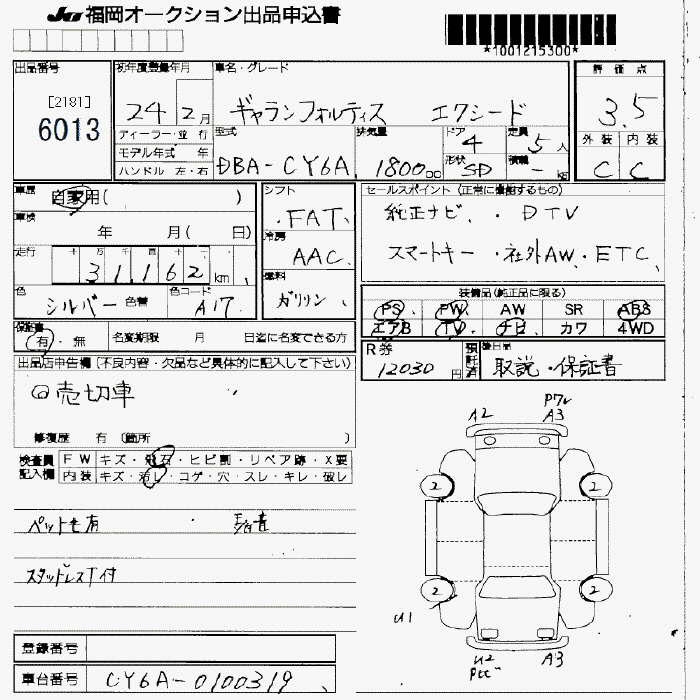 JU 福岡オークション出品申込書
*1001215300*
出品番号
[2181]
6013
初年度登録年月
24 2月
車名・グレード
ギャランフォルティス エクシード
評価点
3.5
ディーラー・並行
モデル年式 年
ハンドル 左・右
型式
DBA-CY6A
排気量
1800cc
ドア
4
形状
SD
定員
5人
積載
- kg
外装 内装
C C
車歴
自家用( )
車検
年 月( 日)
走行
十 万 千 百 十
31,162km
色
シルバー 色替
色コード
A17
シフト
FAT
冷房
AAC
燃料
ガソリン
セールスポイント(正常に機能するもの)
純正ナビ・DTV
スマートキー・社外AW・ETC
装備品(純正品に限る)
PS PW AW SR ABS
エアB TV ナビ カワ 4WD
保証書
有・無
名変期限 月 日迄に名変できる方
R券
12030円
預託済
後日品
取説・保証書
出品店申告欄(不良内容・欠品など具体的に記入して下さい)
◎売切車
修復歴 有(箇所 )
検査員記入欄
FW キズ・飛石・ヒビ割・リペア跡・X要
内装 キズ・汚レ・コゲ・穴・スレ・キレ・破レ
ペット毛有
スタッドレスT付
A2
A3
2 2
2 2
U1
U2
A3
登録番号
車台番号
CY6A-0100319